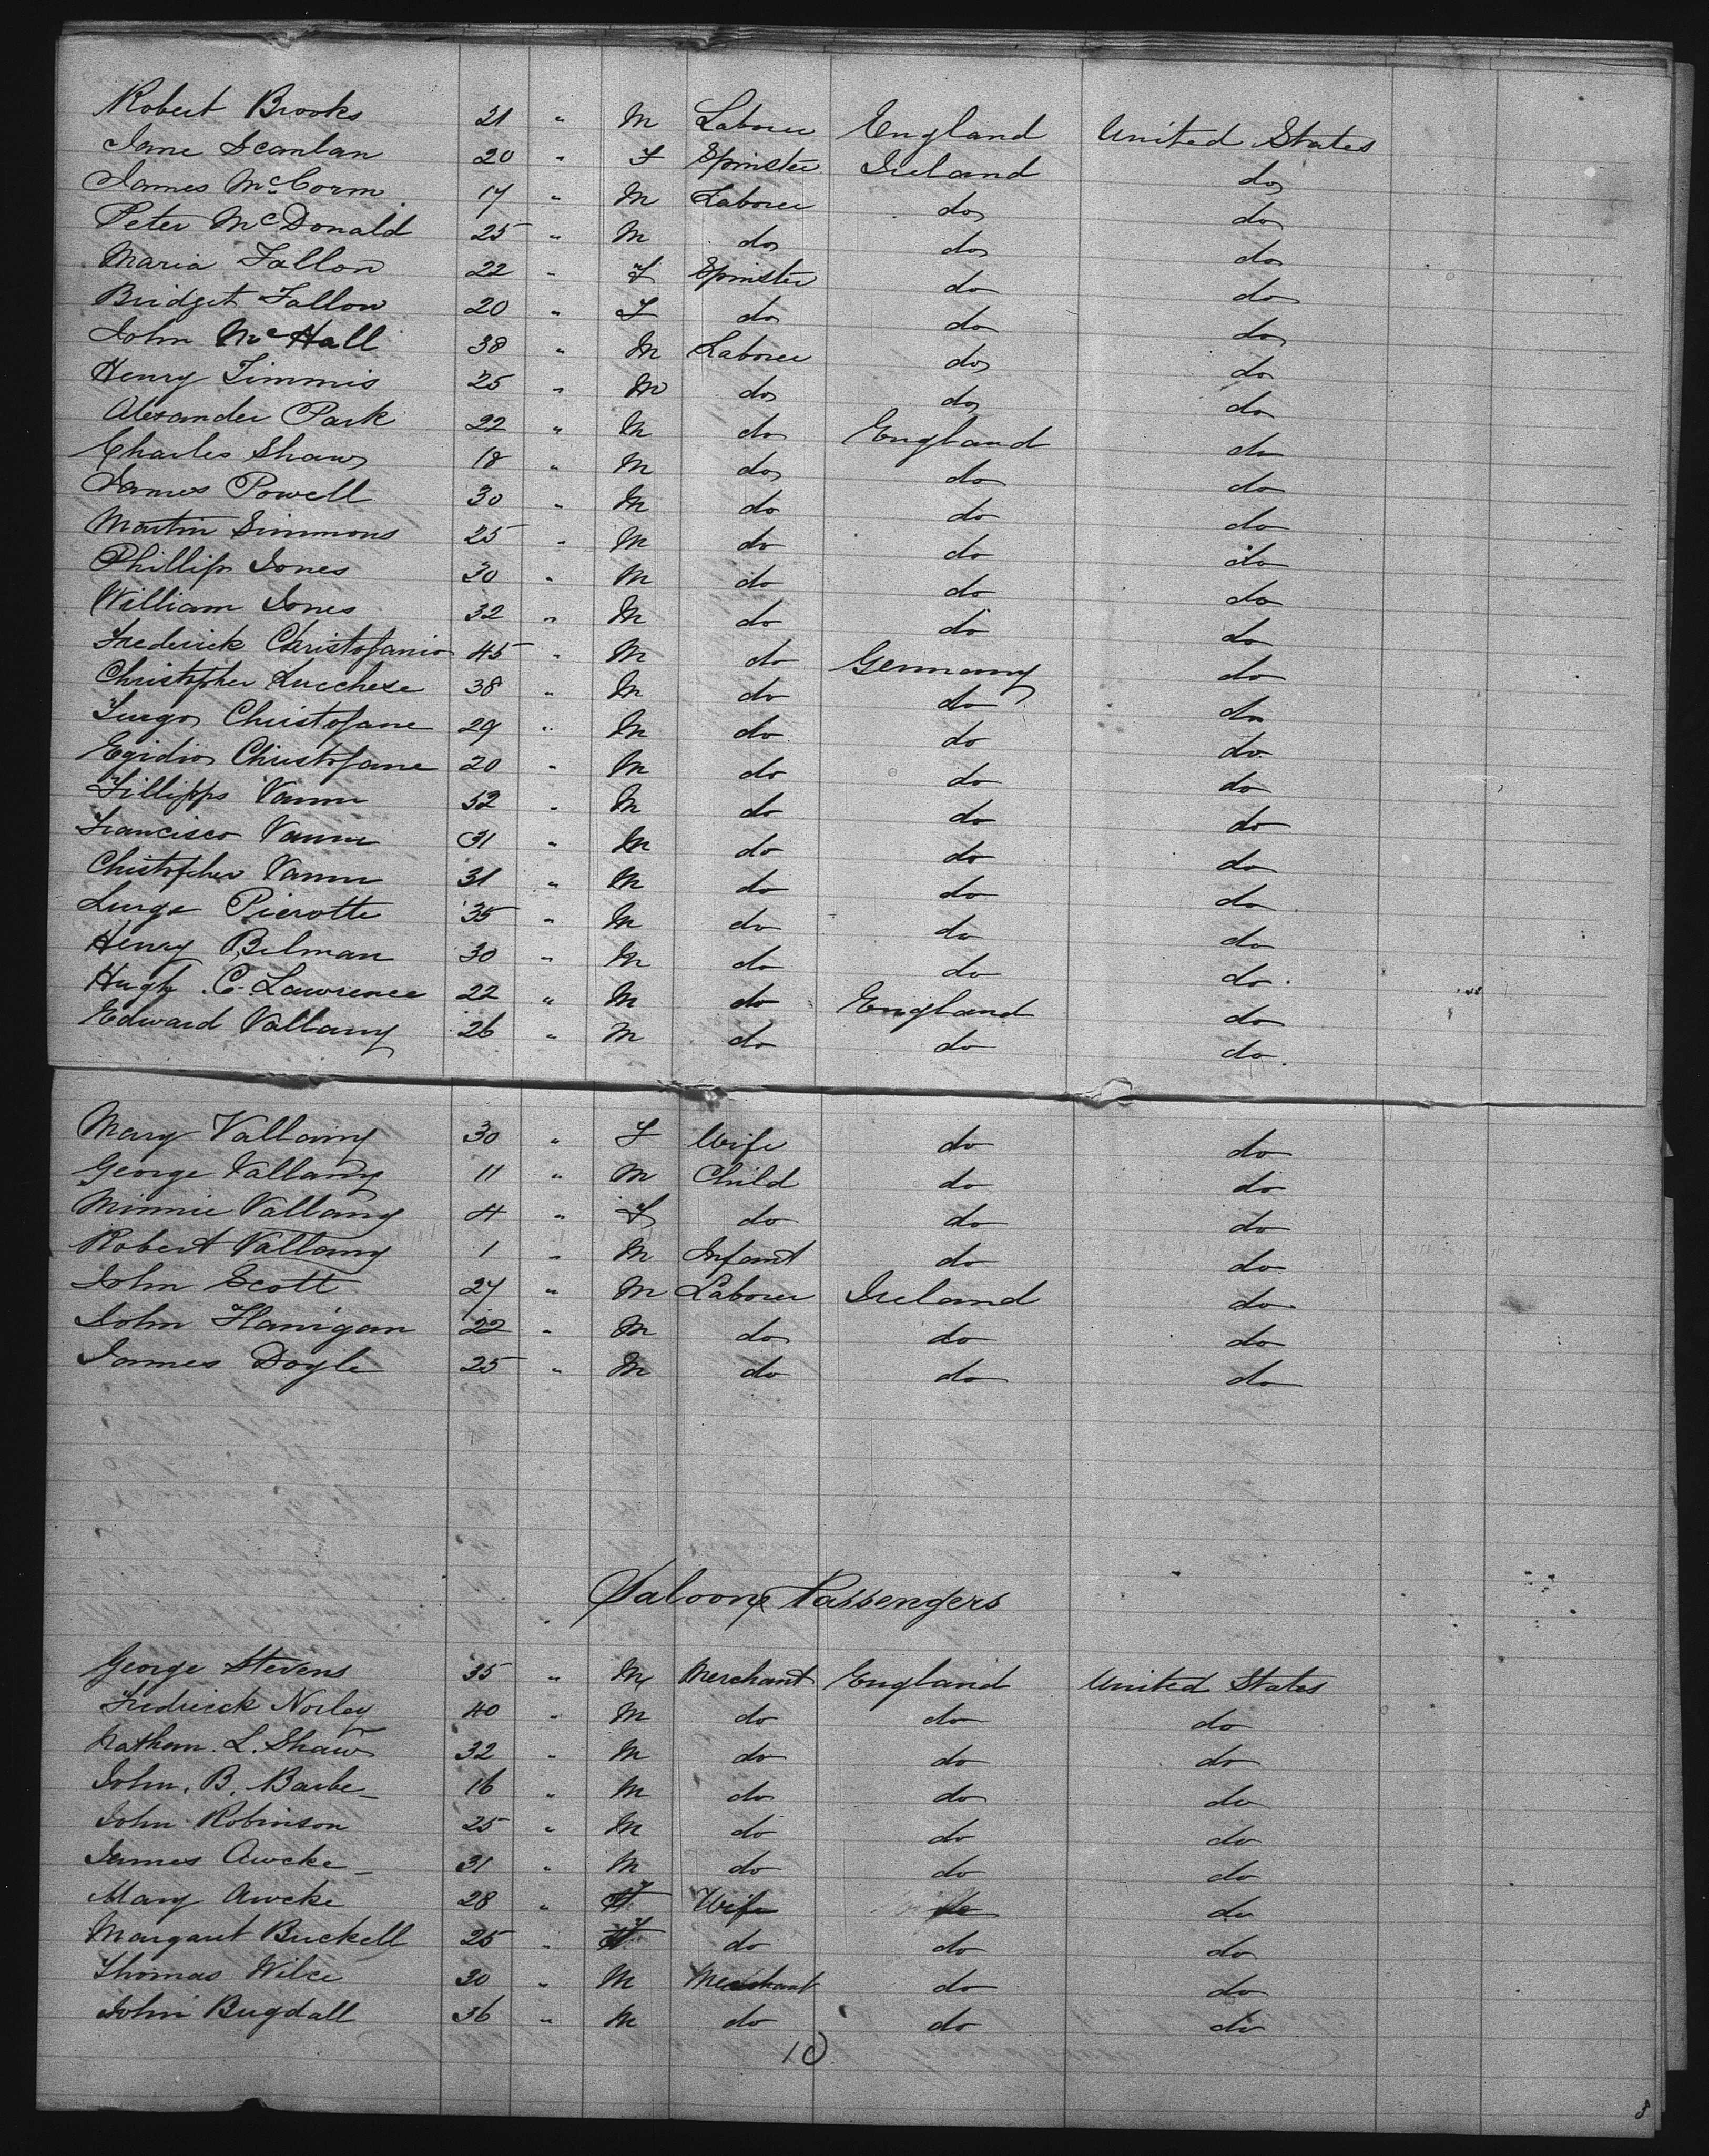 Robert Brooks 21 " M Laborer England United States
Jane Scanlan 20 " F Spinster Ireland do
James McCorm 17 " M Laborer do do
Peter McDonald 25 " M do do do
Maria Fallon 22 " F Spinster do do
Bridget Fallon 20 " F do do do
John McHall 38 " M Laborer do do
Henry Timmis 25 " M do do do
Alexander Park 22 " M do England do
Charles Shaw 18 " M do do do
James Powell 30 " M do do do
Martin Simmons 25 " M do do do
Phillip Jones 30 " M do do do
William Jones 32 " M do do do
Frederick Christofanio 45 " M do Germany do
Christopher Lucchese 38 " M do do do
Luego Christofane 29 " M do do do
Egidio Christofane 20 " M do do do
Fillipps Vanni 32 " M do do do
Francisco Vanni 31 " M do do do
Christopher Vanni 31 " M do do do
Luege Pierotti 35 " M do do do
Henry Belman 30 " M do do do
Hugh C. Lawrence 22 " M do England do
Edward Vallany 26 " M do do do
Mary Vallany 30 " F Wife do do
George Vallany 11 " M Child do do
Minnie Vallany 4 " F do do do
Robert Vallany 1 " M Infant do do
John Scott 27 " M Laborer Ireland do
John Flanigan 22 " M do do do
James Doyle 25 " M do do do
Saloon Passengers
George Stevens 35 " M Merchant England United States
Fredrick Norley 40 " M do do do
Nathan L. Shaw 32 " M do do do
John B. Barbe 16 " M do do do
John Robinson 25 " M do do do
James Awcke 31 " M do do do
Mary Awcke 28 " F Wife do do
Margaret Buckell 25 " F do do do
Thomas Wilce 30 " M Merchant do do
John Bugdall 36 " M do do do
10
8